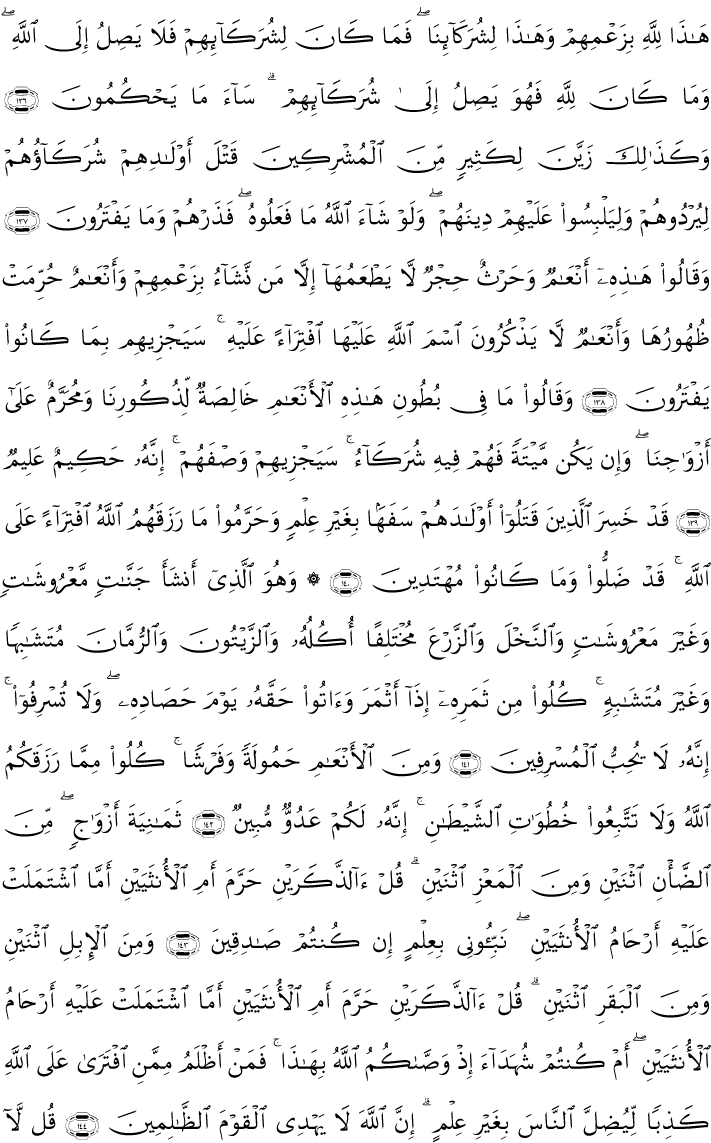 هَـٰذَا لِلَّهِ بِزَعْمِهِمْ وَهَـٰذَا لِشُرَكَآئِنَا ۖ فَمَا كَانَ لِشُرَكَآئِهِمْ فَلَا يَصِلُ إِلَى ٱللَّهِ ۖ
وَمَا كَانَ لِلَّهِ فَهُوَ يَصِلُ إِلَىٰ شُرَكَآئِهِمْ ۗ سَآءَ مَا يَحْكُمُونَ ١٣٦
وَكَذَٰلِكَ زَيَّنَ لِكَثِيرٍ مِّنَ ٱلْمُشْرِكِينَ قَتْلَ أَوْلَـٰدِهِمْ شُرَكَآؤُهُمْ
لِيُرْدُوهُمْ وَلِيَلْبِسُوا۟ عَلَيْهِمْ دِينَهُمْ ۖ وَلَوْ شَآءَ ٱللَّهُ مَا فَعَلُوهُ ۖ فَذَرْهُمْ وَمَا يَفْتَرُونَ ١٣٧
وَقَالُوا۟ هَـٰذِهِۦٓ أَنْعَـٰمٌ وَحَرْثٌ حِجْرٌ لَّا يَطْعَمُهَآ إِلَّا مَن نَّشَآءُ بِزَعْمِهِمْ وَأَنْعَـٰمٌ حُرِّمَتْ
ظُهُورُهَا وَأَنْعَـٰمٌ لَّا يَذْكُرُونَ ٱسْمَ ٱللَّهِ عَلَيْهَا ٱفْتِرَآءً عَلَيْهِ ۚ سَيَجْزِيهِم بِمَا كَانُوا۟
يَفْتَرُونَ ١٣٨ وَقَالُوا۟ مَا فِى بُطُونِ هَـٰذِهِ ٱلْأَنْعَـٰمِ خَالِصَةٌ لِّذُكُورِنَا وَمُحَرَّمٌ عَلَىٰٓ
أَزْوَٰجِنَا ۖ وَإِن يَكُن مَّيْتَةً فَهُمْ فِيهِ شُرَكَآءُ ۚ سَيَجْزِيهِمْ وَصْفَهُمْ ۚ إِنَّهُۥ حَكِيمٌ عَلِيمٌ
١٣٩ قَدْ خَسِرَ ٱلَّذِينَ قَتَلُوٓا۟ أَوْلَـٰدَهُمْ سَفَهًۢا بِغَيْرِ عِلْمٍ وَحَرَّمُوا۟ مَا رَزَقَهُمُ ٱللَّهُ ٱفْتِرَآءً عَلَى
ٱللَّهِ ۚ قَدْ ضَلُّوا۟ وَمَا كَانُوا۟ مُهْتَدِينَ ١٤٠ ۞ وَهُوَ ٱلَّذِىٓ أَنشَأَ جَنَّـٰتٍ مَّعْرُوشَـٰتٍ
وَغَيْرَ مَعْرُوشَـٰتٍ وَٱلنَّخْلَ وَٱلزَّرْعَ مُخْتَلِفًا أُكُلُهُۥ وَٱلزَّيْتُونَ وَٱلرُّمَّانَ مُتَشَـٰبِهًا
وَغَيْرَ مُتَشَـٰبِهٍ ۚ كُلُوا۟ مِن ثَمَرِهِۦٓ إِذَآ أَثْمَرَ وَءَاتُوا۟ حَقَّهُۥ يَوْمَ حَصَادِهِۦ ۖ وَلَا تُسْرِفُوٓا۟ ۚ
إِنَّهُۥ لَا يُحِبُّ ٱلْمُسْرِفِينَ ١٤١ وَمِنَ ٱلْأَنْعَـٰمِ حَمُولَةً وَفَرْشًا ۚ كُلُوا۟ مِمَّا رَزَقَكُمُ
ٱللَّهُ وَلَا تَتَّبِعُوا۟ خُطُوَٰتِ ٱلشَّيْطَـٰنِ ۚ إِنَّهُۥ لَكُمْ عَدُوٌّ مُّبِينٌ ١٤٢ ثَمَـٰنِيَةَ أَزْوَٰجٍ ۖ مِّنَ
ٱلضَّأْنِ ٱثْنَيْنِ وَمِنَ ٱلْمَعْزِ ٱثْنَيْنِ ۗ قُلْ ءَآلذَّكَرَيْنِ حَرَّمَ أَمِ ٱلْأُنثَيَيْنِ أَمَّا ٱشْتَمَلَتْ
عَلَيْهِ أَرْحَامُ ٱلْأُنثَيَيْنِ ۖ نَبِّـُٔونِى بِعِلْمٍ إِن كُنتُمْ صَـٰدِقِينَ ١٤٣ وَمِنَ ٱلْإِبِلِ ٱثْنَيْنِ
وَمِنَ ٱلْبَقَرِ ٱثْنَيْنِ ۗ قُلْ ءَآلذَّكَرَيْنِ حَرَّمَ أَمِ ٱلْأُنثَيَيْنِ أَمَّا ٱشْتَمَلَتْ عَلَيْهِ أَرْحَامُ
ٱلْأُنثَيَيْنِ ۖ أَمْ كُنتُمْ شُهَدَآءَ إِذْ وَصَّىٰكُمُ ٱللَّهُ بِهَـٰذَا ۚ فَمَنْ أَظْلَمُ مِمَّنِ ٱفْتَرَىٰ عَلَى ٱللَّهِ
كَذِبًا لِّيُضِلَّ ٱلنَّاسَ بِغَيْرِ عِلْمٍ ۗ إِنَّ ٱللَّهَ لَا يَهْدِى ٱلْقَوْمَ ٱلظَّـٰلِمِينَ ١٤٤ قُل لَّآ